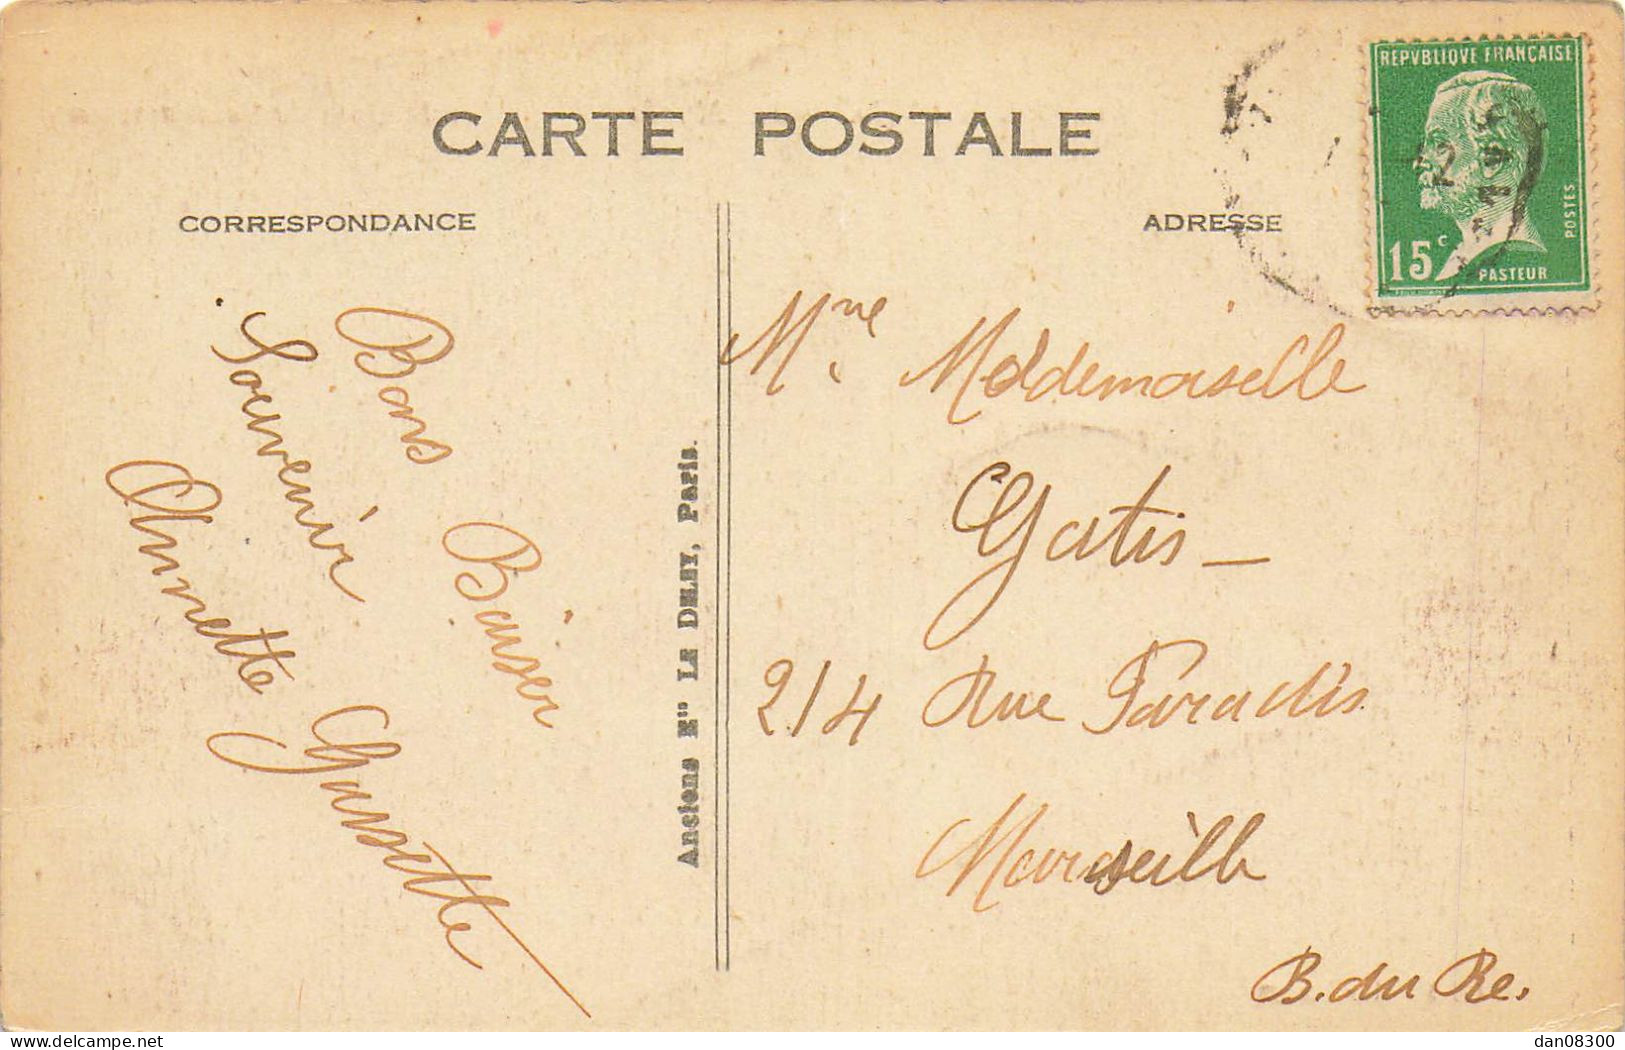 CARTE POSTALE
CORRESPONDANCE
ADRESSE
REPVBLIQVE FRANÇAISE
15c
PASTEUR
POSTES
Bons Baiser
Souvenir
Annette Gaussette
Anciens Ets LE DELEY, Paris.
Mme Mademoiselle
Gatis -
214 Rue Paradis
Marseille
B. du Re.
delcampe.net
dan08300